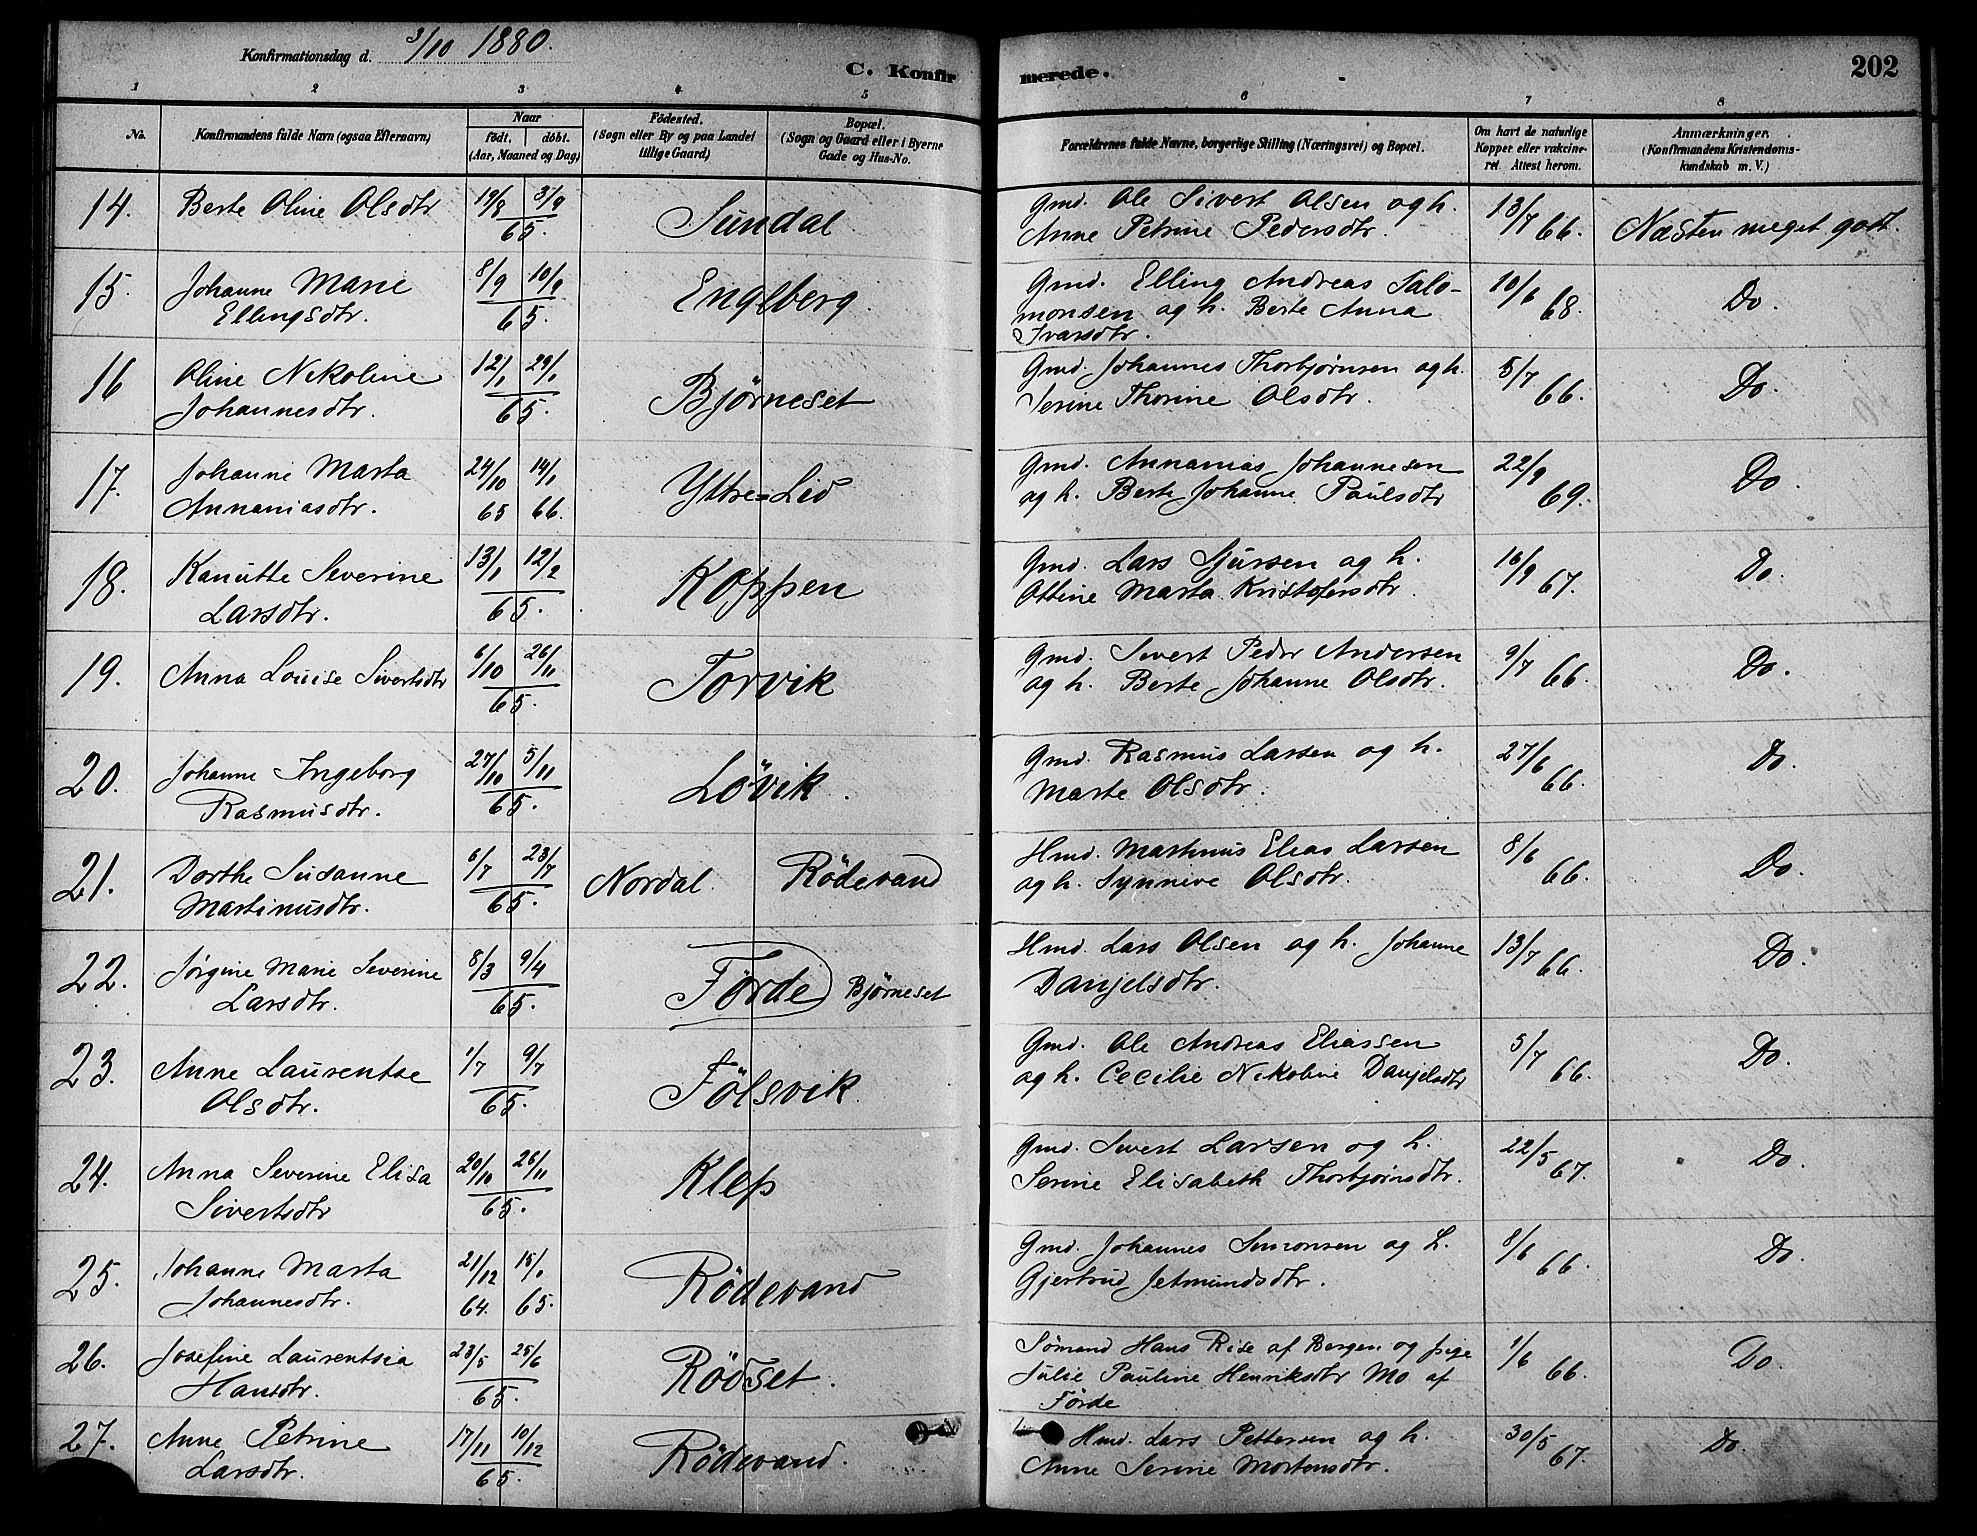 Konfirmationsdag d. 3/10 1880.
C. Konfirmerede.
202
1 2 3 4 5 6 7 8
No.
Konfirmandens fulde Navn (ogsaa Efternavn)
Naar
födt, döbt.
(Aar, Maaned og Dag)
Födested.
(Sogn eller By og paa Landet
tillige Gaard)
Bopæl.
(Sogn og Gaard eller i Byerne
Gade og Hus-No.
Forældrenes fulde Navne, borgerlige Stilling (Næringsvei) og Bopæl.
Om havt de naturlige
Kopper eller vakcine-
ret. Attest herom.
Anmærkninger.
(Konfirmandens Kristendoms-
kundskab m. V.)
14. Berte Oline Olsdtr 19/8 3/9 65. Sundal Gmd. Ole Sivert Olsen og h. 13/7 66. Næsten meget godt.
Anne Petrine Pedersdtr.
15. Johanne Marie 8/9 10/9 65. Engeberg. Gmd. Elling Andreas Salo- 10/6 68. Do.
Ellingsdtr. monsen og h. Berte Anna
Ivarsdtr.
16 Oline Nikoline 12/1 29/1 65. Björneset Gmd. Johannes Thorbjørnsen og h. 5/7 66. Do.
Johannesdtr. Serine Thorine Olsdtr.
17. Johanne Marta 24/10 65 14/1 66. Yttre=Lid Gmd. Annanias Johannesen 22/9 69. Do.
Annaniasdtr. og h. Berte Johanne Paulsdtr
18. Kanutte Severine 13/1 12/2 65. Koppen Gmd. Lars Sjursen og h. 16/9 67. Do.
Larsdtr. Ottine Marta Kristofersdtr.
19. Anna Louise Sivertsdtr 6/10 26/11 65. Torvik Gmd. Sivert Peder Andersen 9/7 66. Do.
og h. Berte Johanne Olsdtr.
20. Johanne Ingeborg 27/10 5/11 65. Lövik. Gmd. Rasmus Larsen og h. 27/6 66. Do.
Rasmusdtr. Marte Olsdtr.
21. Dorthe Susanne 6/7 23/7 65. Nordal. Rödevand Hmd. Martinus Elias Larsen 8/6 66. Do.
Martinusdtr. og h. Synneve Olsdtr.
22. Jørgine Marie Severine 8/3 9/4 65. Förde Björneset Hmd. Lars Olsen og h. Johanne 13/7 66. Do.
Larsdtr. Danjelsdtr.
23. Anne Laurentse 1/7 9/7 65. Fölsvik Gmd. Ole Andreas Eliassen 5/7 66. Do.
Olsdtr. og h. Cecilie Nikoline Danjelsdtr
24. Anna Severine Elisa 20/10 26/11 65. Klep Gmd. Sivert Larsen og h. 22/5 67. Do.
Sivertsdtr Serine Elisabeth Thorbjørnsdtr.
25. Johanne Marta 21/12 64. 15/1 65. Rödevand Gmd. Johannes Simonsen og h. 8/6 66. Do.
Johannesdtr. Gjertrud Jetmundsdtr.
26. Josefine Laurentsia 23/5 25/6 65. Rödset. Sømand Hans Rise af Bergen og pige 1/6 66. Do.
Hansdtr. Julie Pauline Henriksdtr Mo af
Førde
27. Anne Petrine 17/11 10/12 65. Rödevand. Hmd. Lars Pettersen og h. 30/5 67. Do.
Larsdtr. Anne Serine Mortensdtr.